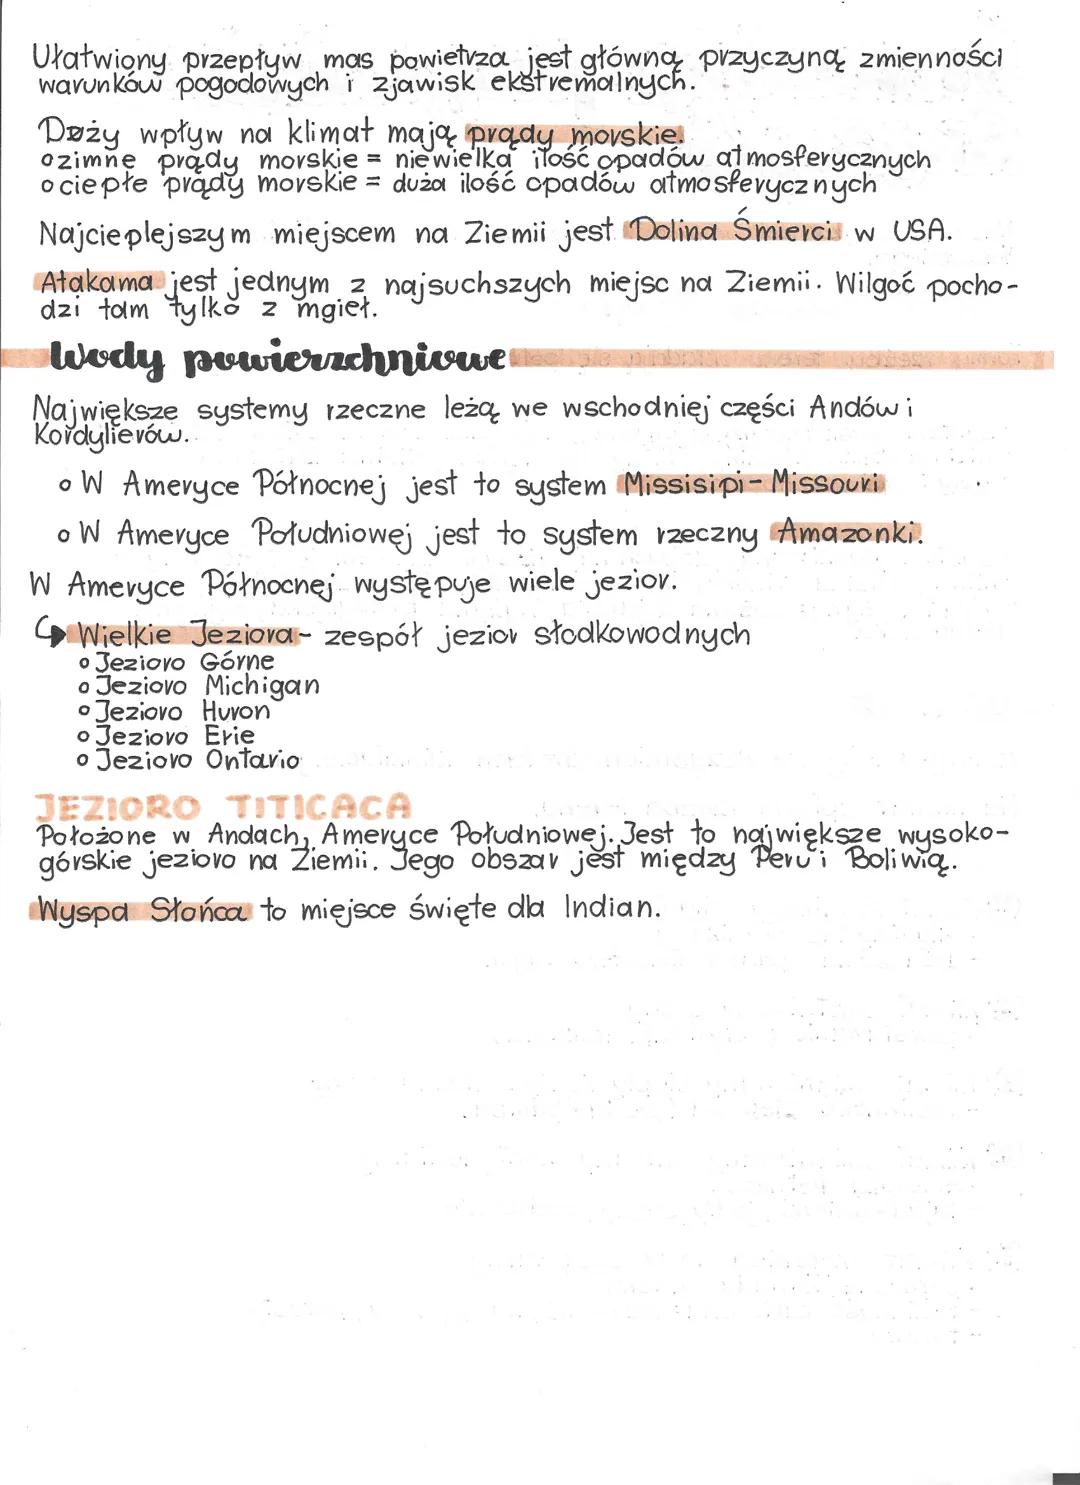 Ułatwiony przepływ mas powietrza jest główną przyczyną zmienności
warunków pogodowych i zjawisk ekstremalnych.
Duży wpływ na klimat mają prądy morskie.
o zimne prądy morskie = niewielka ilość opadów atmosferycznych
o ciepłe prądy morskie = duża ilość opadów atmosferycznych
Najcieplejszym miejscem na Ziemii jest Dolina Śmierci w USA.
Atakama jest jednym z najsuchszych miejsc na Ziemii. Wilgoć pocho-
dzi tam tylko z mgieł.
Wody powierzchniowe
Największe systemy rzeczne leżą we wschodniej części Andów i
Kordylierów.
o W Ameryce Północnej jest to system Missisipi - Missouri
o W Ameryce Południowej jest to system rzeczny Amazonki.
W Ameryce Północnej występuje wiele jezior.
↪ Wielkie Jeziora - zespół jezior słodkowodnych
o Jezioro Górne
o Jezioro Michigan
o Jezioro Huron
o Jezioro Erie
o Jezioro Ontario
JEZIORO TITICACA
Położone w Andach, Ameryce Południowej. Jest to największe wysoko-
górskie jezioro na Ziemii. Jego obszar jest między Peru i Boliwią.
Wyspa Słońca to miejsce święte dla Indian.